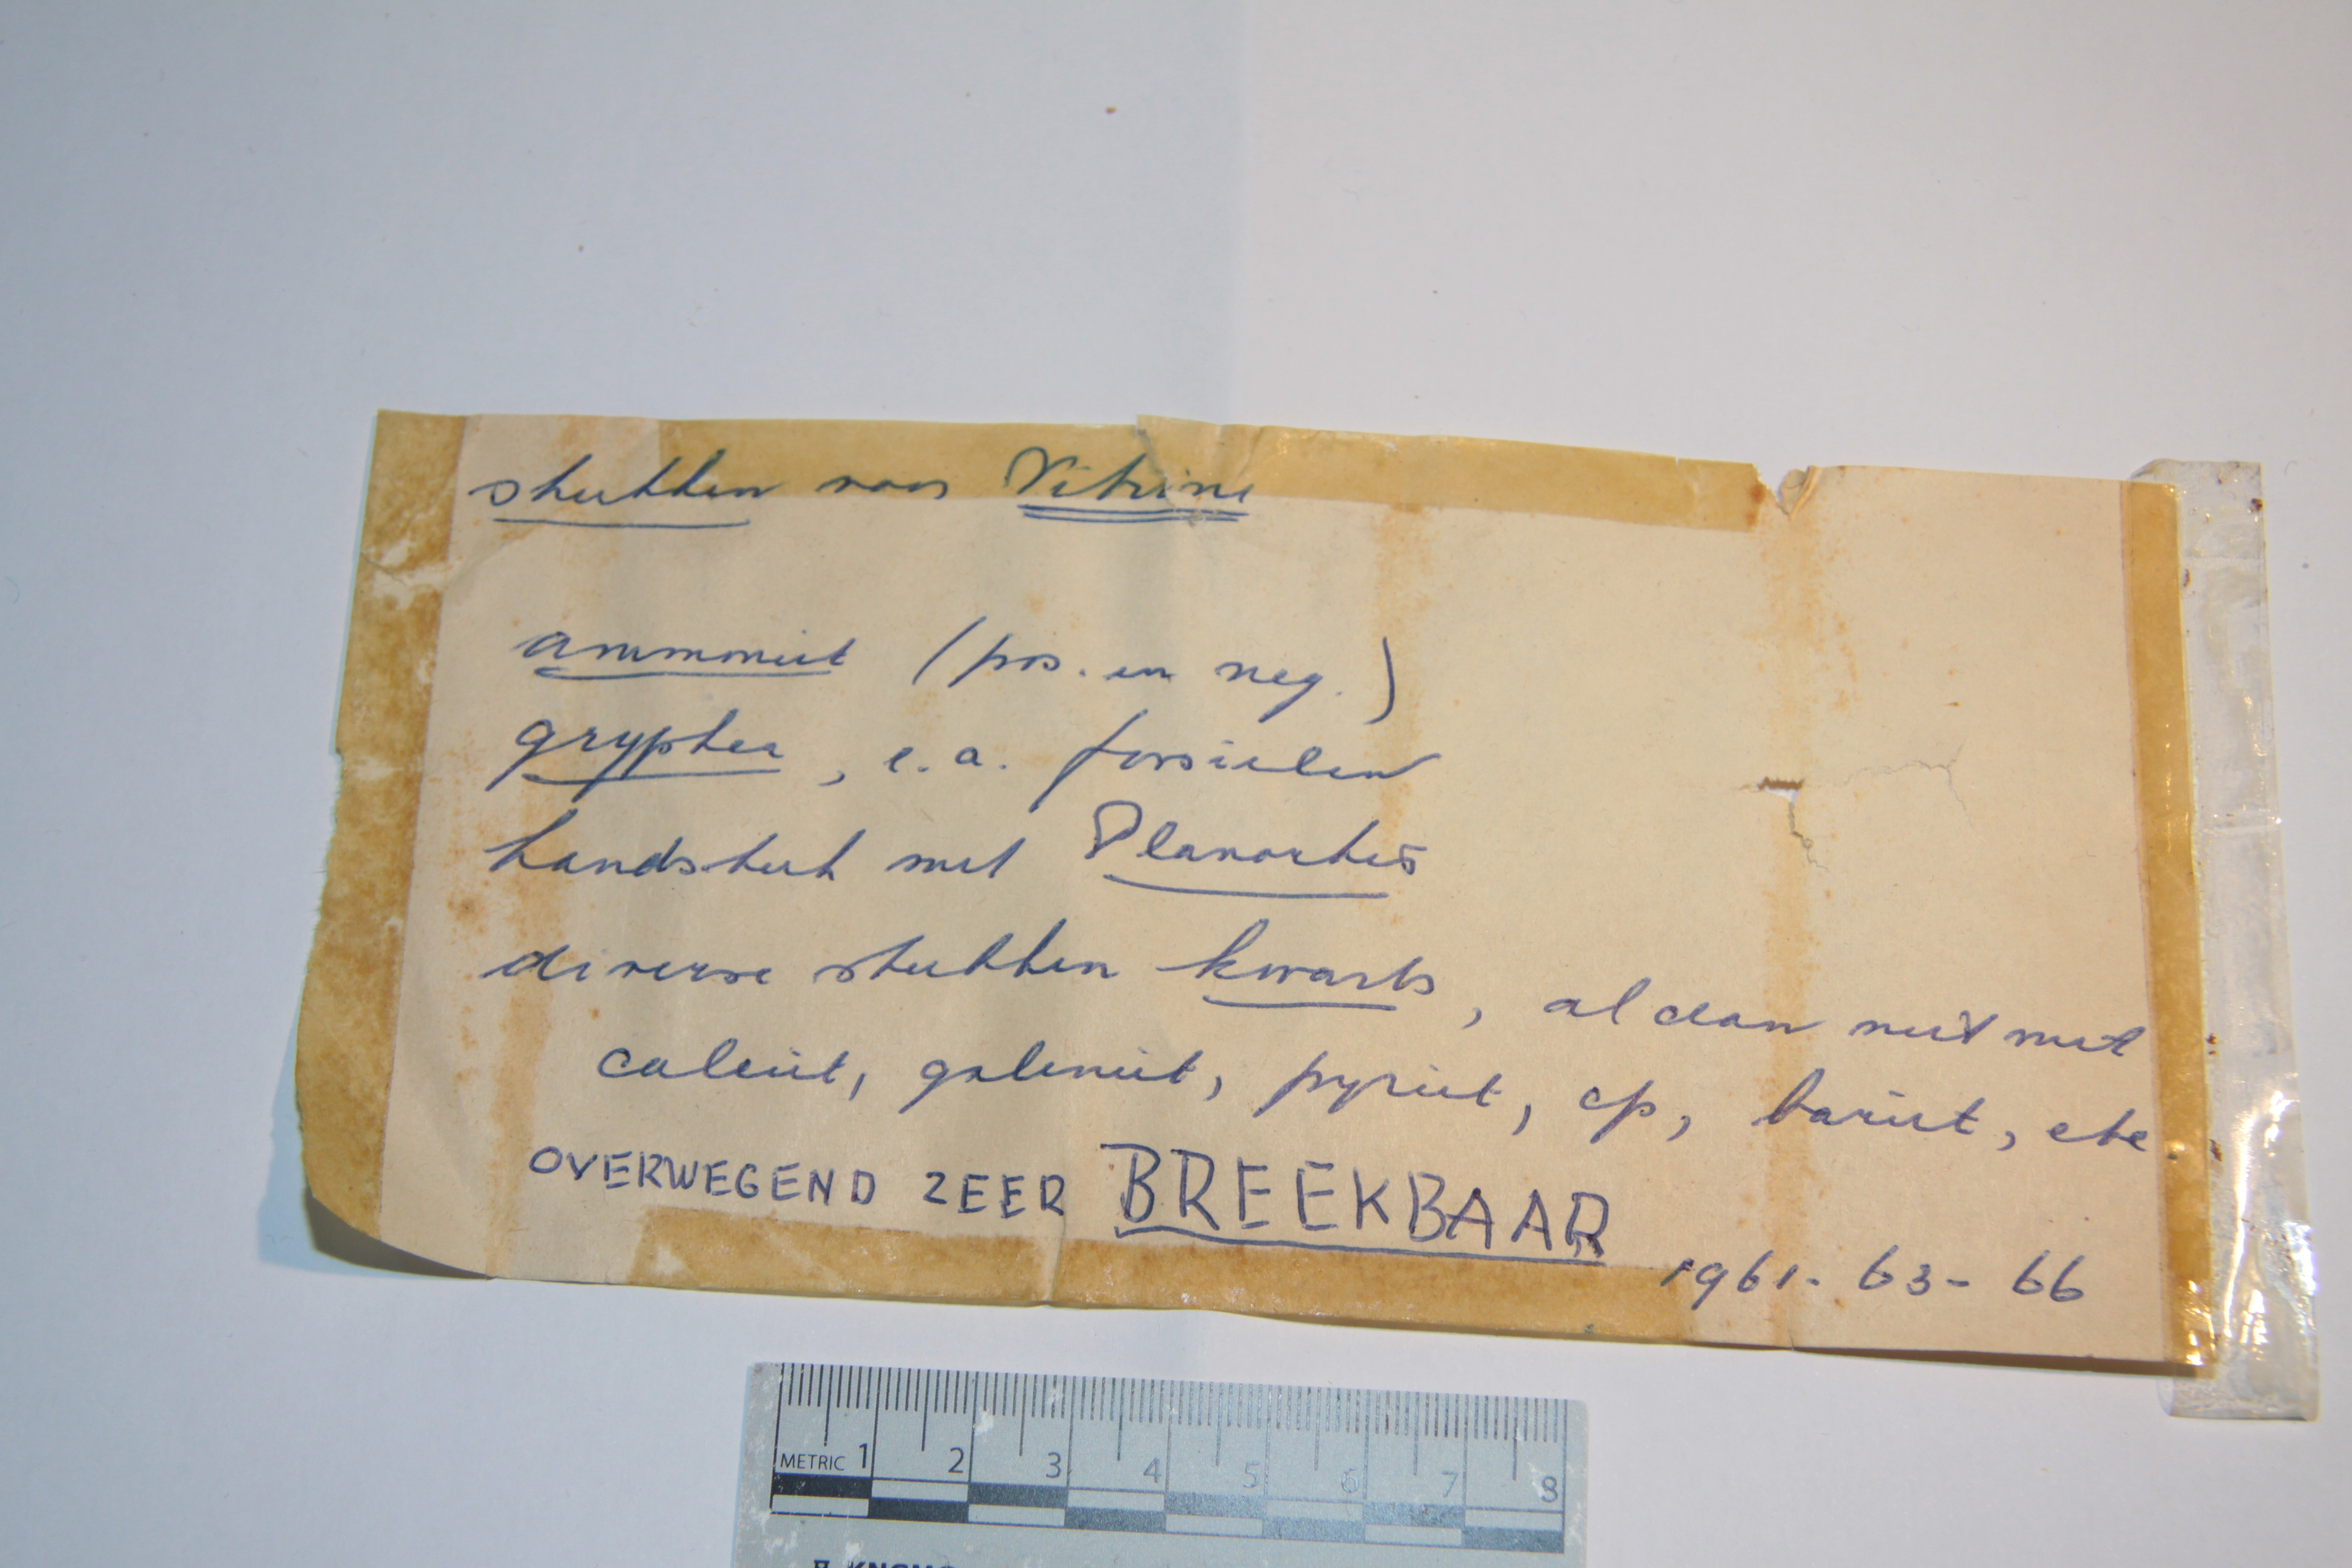 stukken voor Vitrine
ammoniet (pos. en neg.)
gryphea, e.a. fossielen
handstuk met Planorbis
diverse stukken kwarts, al dan niet met
calciet, galeniet, pyriet, cp, bariet, etc.
OVERWEGEND ZEER BREEKBAAR
1961-63-66
METRIC 1 2 3 4 5 6 7 8